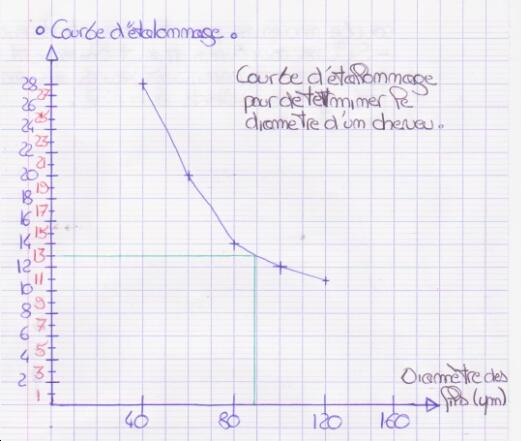 ° Courbe d'étalommage.
Courbe d'étalommage
pour détetmimer le
diamètre d'um cheveu.
28
27
26
25
24
22
23
20
21
18
19
16
17
14
15
12
13
10
11
8
9
6
7
4
5
2
3
1
40
80
120
160
Diamètre des
fils (µm)